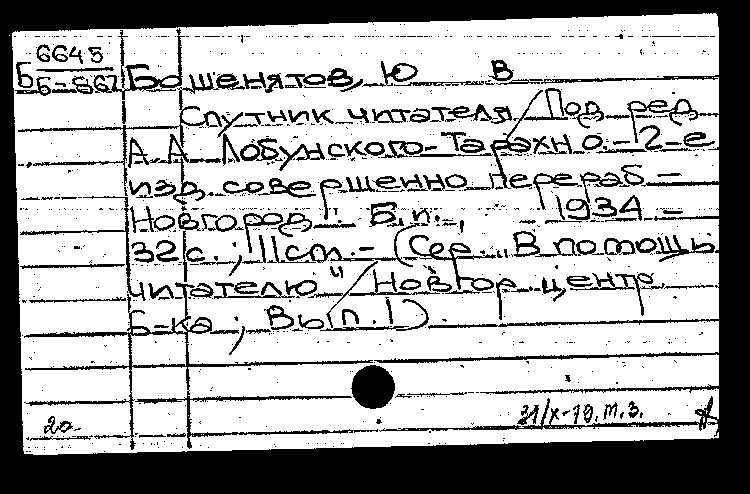 6645
Б Б-867 Бошенятов, Ю В
Спутник читателя / Под ред
А. А. Лобунского-Тарахно. - 2-е
изд. совершенно перераб -
Новгород : Б.и., 1934 -
32 с. ; 11 cm. - (Сер. „В помощь
читателю" / Новгор. центр.
б-ка ; Вып. 1).
20-
31/X-79. М.З.